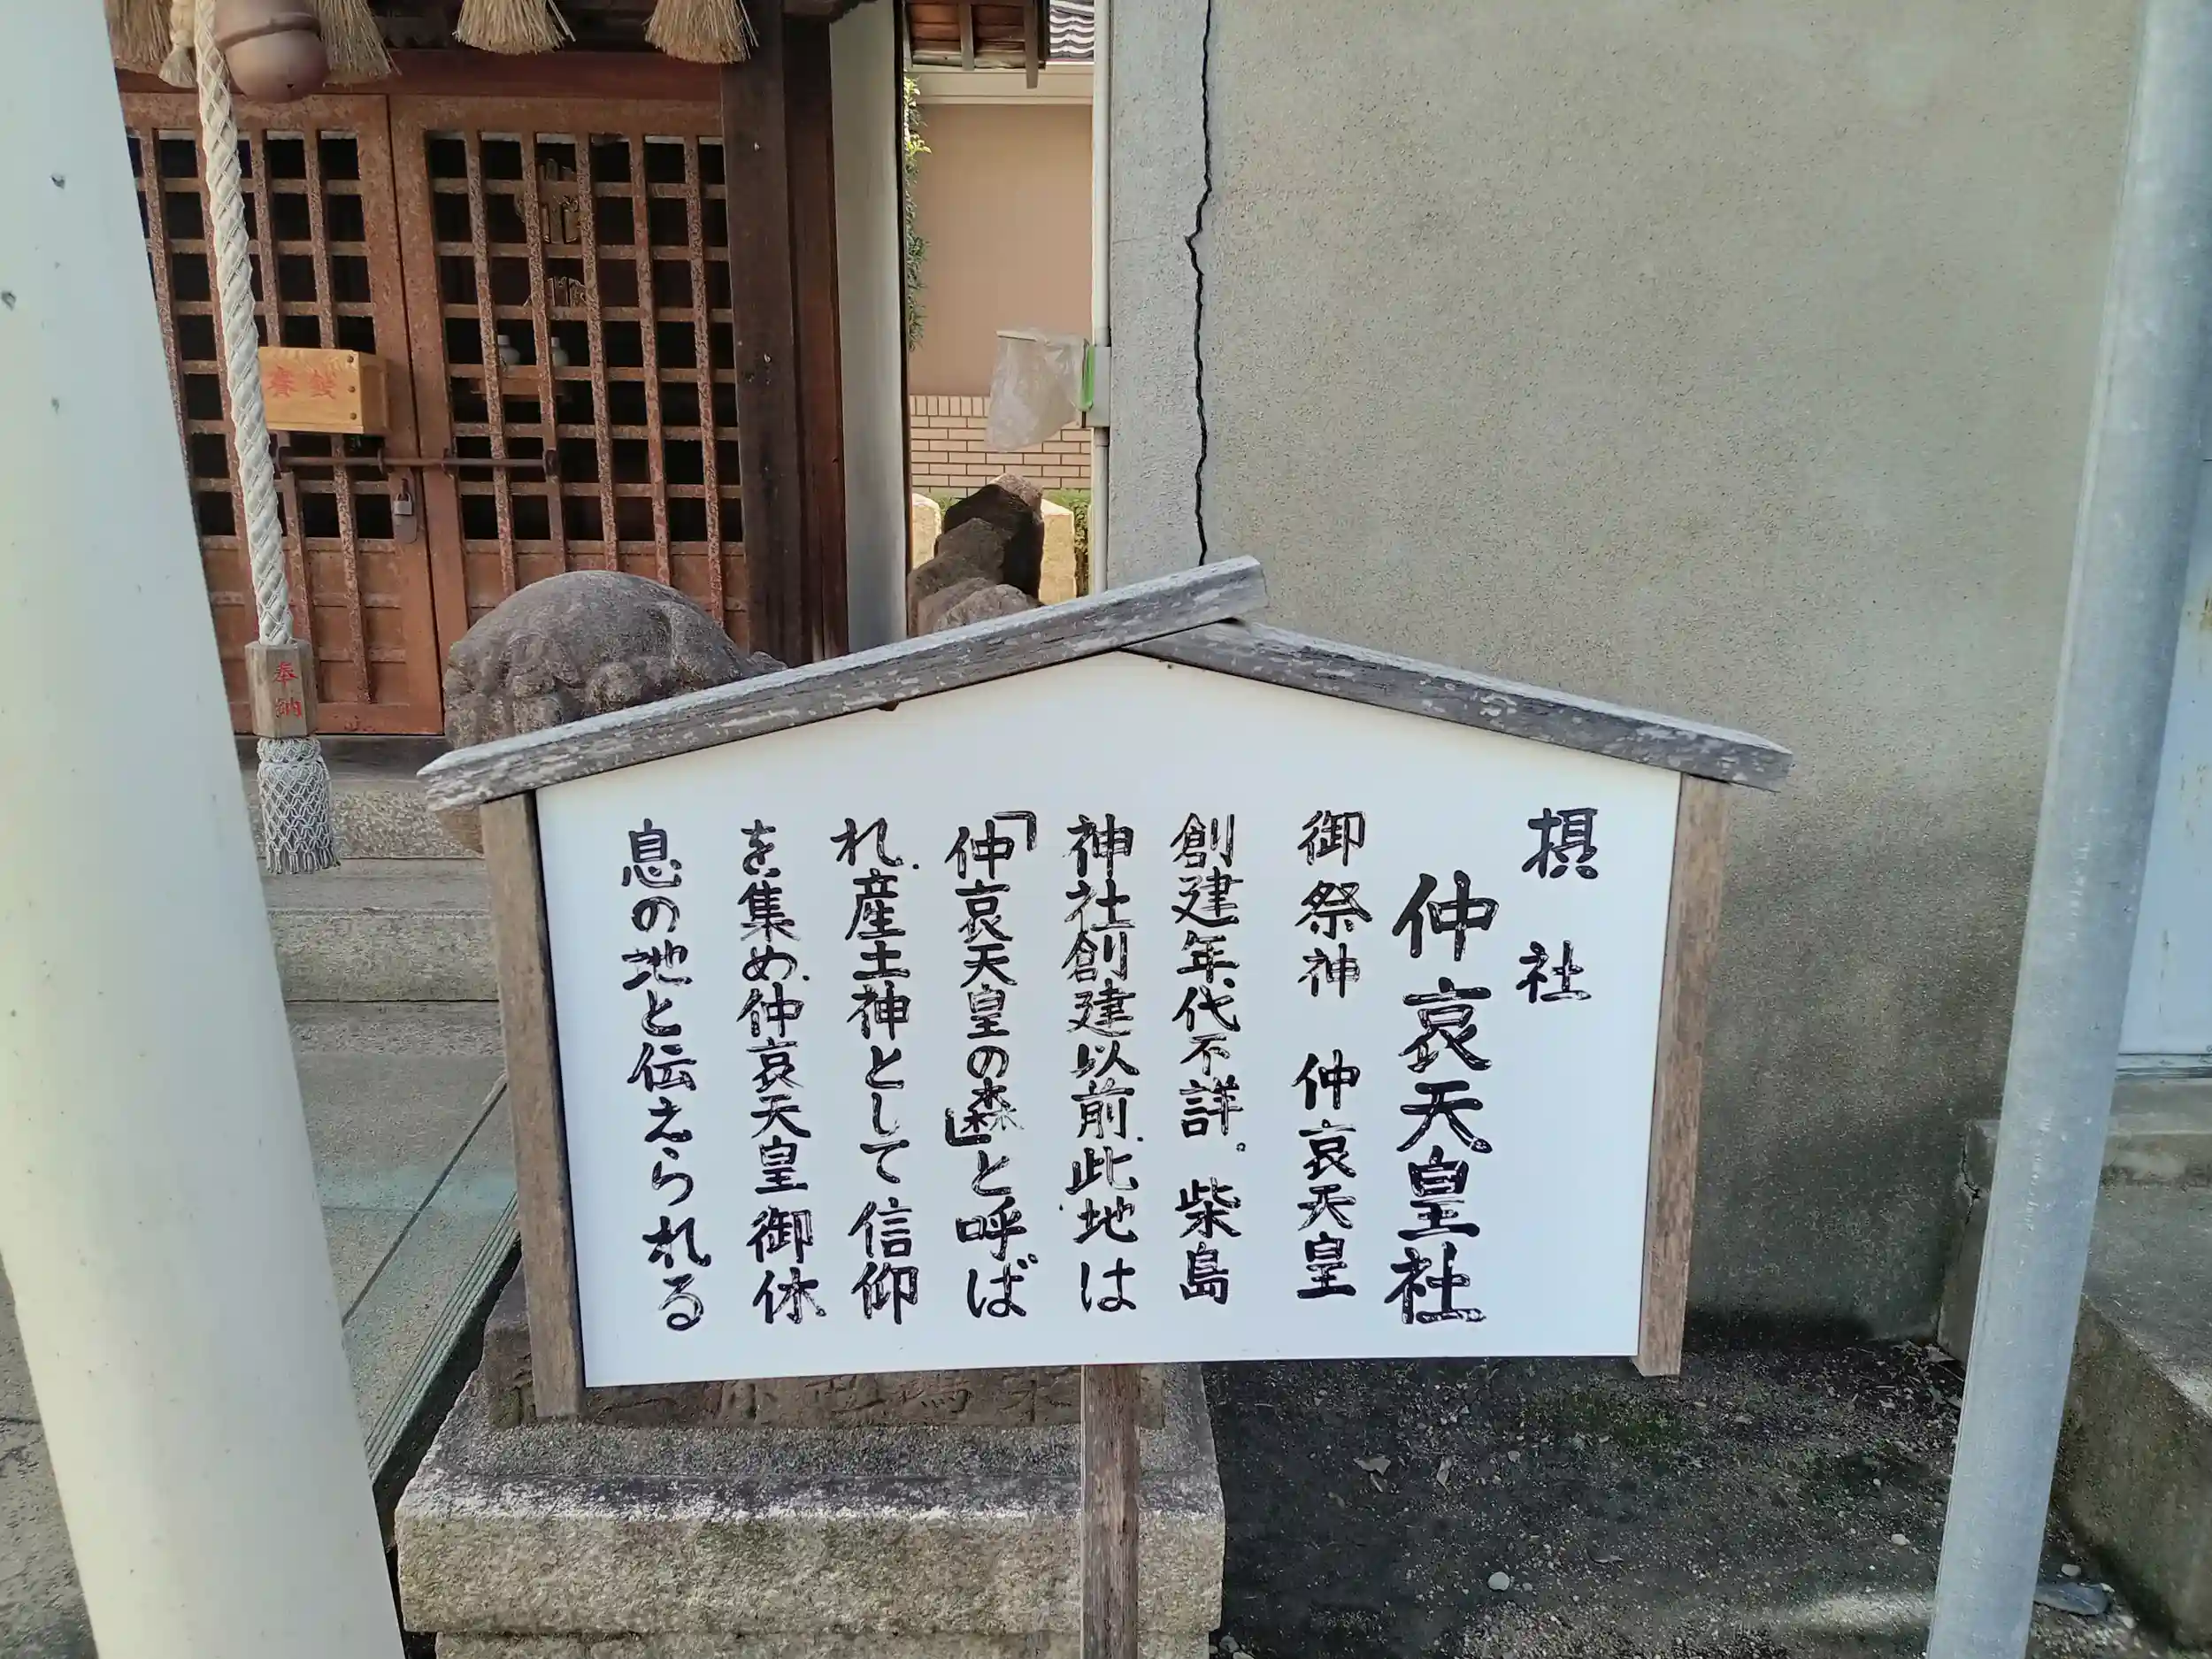 摂社
仲哀天皇社
御祭神 仲哀天皇
創建年代不詳。柴島
神社創建以前、此地は
「仲哀天皇の森」と呼ば
れ、産土神として信仰
を集め、仲哀天皇御休
息の地と伝えられる
賽銭
奉納